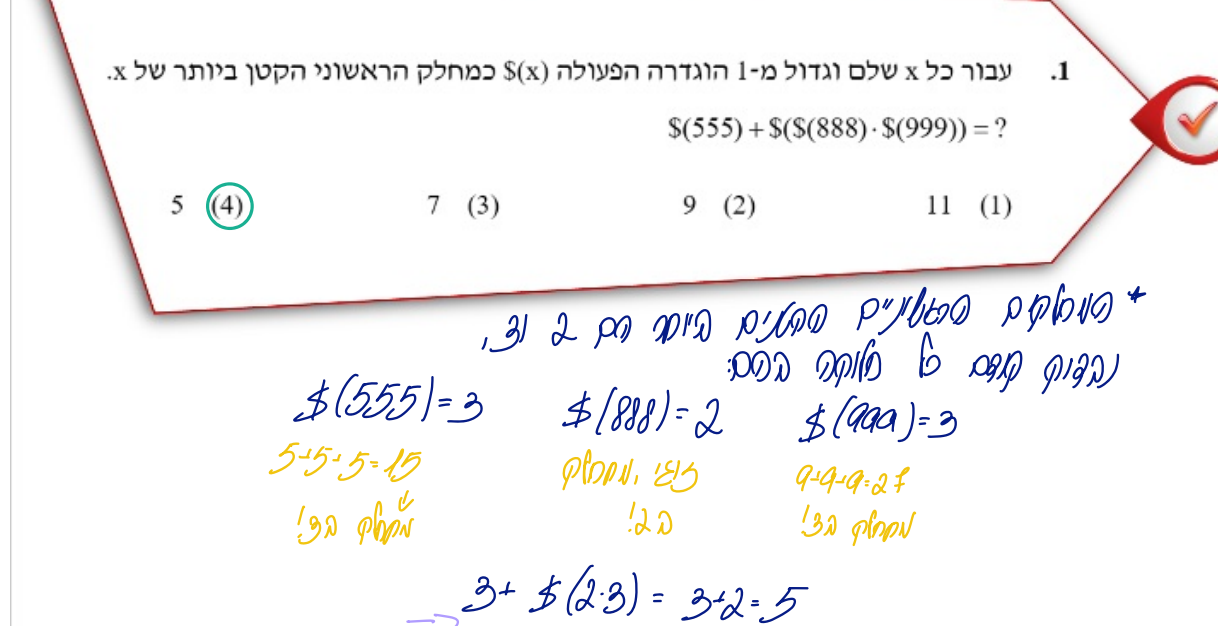 1. עבור כל x שלם וגדול מ-1 הוגדרה הפעולה $(x) כמחלק הראשוני הקטן ביותר של x.
$(555) + $($(888) · $(999)) = ?
(1) 11 (2) 9 (3) 7 (4) 5
* המחלקים הראשוניים הקטנים ביותר הם 2 ו3,
נבדוק קודם כל חלוקה בהם:
$(555)=3 $(888)=2 $(999)=3
5+5+5=15 זוגי, מתחלק 9+9+9=27
מתחלק ב3! ב2! מתחלק ב3!
3+ $(2·3) = 3+2=5